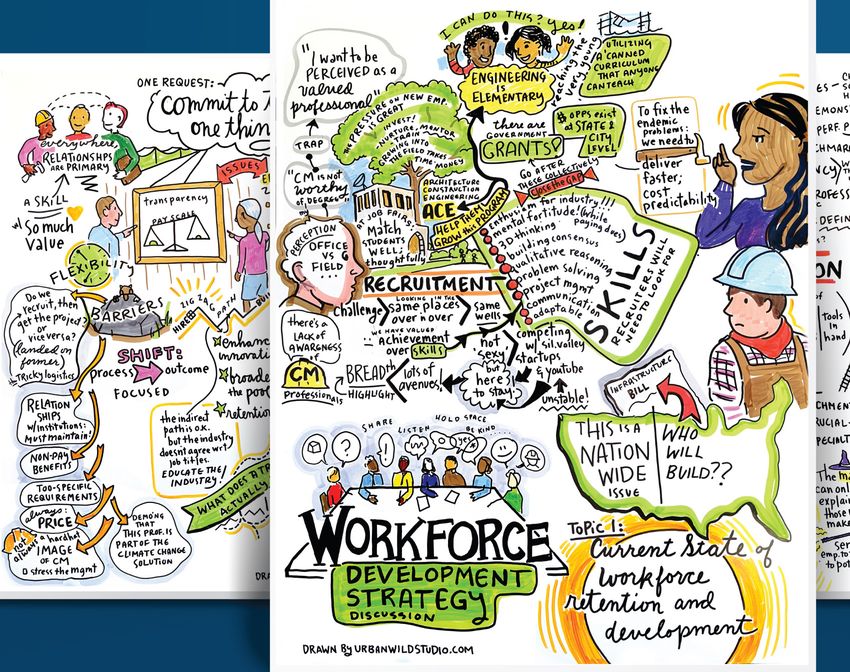 ONE REQUEST:
Commit to
one thin
everywhere,
RELATIONSHIPS
ARE PRIMARY
A SKILL
w/ So much
Value
transparency
PAY SCALE
ISSUES
FLEXIBILITY
Do we
recruit, then
get the project?
or
vice versa?
(landed on
former)
Tricky logistics
BARRIERS
HIRES
ZIG ZAG
PATH
SHIFT:
process
outcome
FOCUSED
enhance
innovati
broade
the poo
retentio
RELATION
SHIPS
W/INSTITUTIONS:
MUST MAINTAIN!
NON-PAY
BENEFITS
TOO-SPECIFIC
REQUIREMENTS
always:
PRICE
a hardhat!
IMAGE OF
CM
stress the mgmt
the indirect
path is ok.
but the industry
doesn't agree w/
job titles.
EDUCATE THE
INDUSTRY!
DEMO'NG
THAT
THIS PROF. IS
PART OF THE
CLIMATE CHANGE
SOLUTION
WHAT DOES A TR
ACTUALLY
"I want to be
PERCEIVED AS a
valued
professional"
TRAP
"CM IS NOT
worthy
of DEGREE"
PERCEPTION
OFFICE
VS
FIELD...
"PRESSURE ON NEW EMP.
IS GREAT
INVEST!
NURTURE, MENTOR
TRAIN
GROWING INTO
THE FIELD TAKES
TIME MONEY
AT JOB FAIRS
Match
STUDENTS
WELL;
thoughtfully
ARCHITECTURE
CONSTRUCTION
ENGINEERING
ACE
HELP THEM
GROW THIS PROGRAM
I CAN DO THIS? yes!
!
ENGINEERING
IS
ELEMENTARY
reaching the
very young
UTILIZING
A 'CANNED
CURRICULUM
THAT ANYONE
CAN TEACH
there are
GOVERNMENT
GRANTS!
$ OPPS EXIST
at STATE &
CITY
LEVEL!
GO AFTER
THESE COLLECTIVELY
Close the GAP
To fix the
endemic
problems:
we need to
deliver
faster;
cost
predictability
Enthusiasm for industry!!!
mental fortitude! (while paying does)
3D thinking
building consensus
qualitative reasoning
problem solving
project mgmt
communication
adaptable
SKILLS
RECRUITERS WILL
NEED TO LOOK FOR
RECRUITMENT
challenge
LOOKING IN THE
same places
over n over
same
wells
there's a
LACK OF
AWARENESS
of
CM
Professionals
WE HAVE VALUED
achievement
over skills
BREADTH
HIGHLIGHT
lots of
avenues!
not
sexy
but
here
to stay
competing
w/ sil. valley
startups
& youtube
unstable!
INFRASTRUCTURE
BILL
THIS IS A
NATION
WIDE
ISSUE
WHO
WILL
BUILD??
SHARE
LISTEN
HOLD SPACE
BE KIND...
yes
WORKFORCE
DEVELOPMENT
STRATEGY
DISCUSSION
TOPIC 1:
Current State of
workforce
retention and
development
DRAWN BY URBANWILDSTUDIO.COM
Tools
in
hand